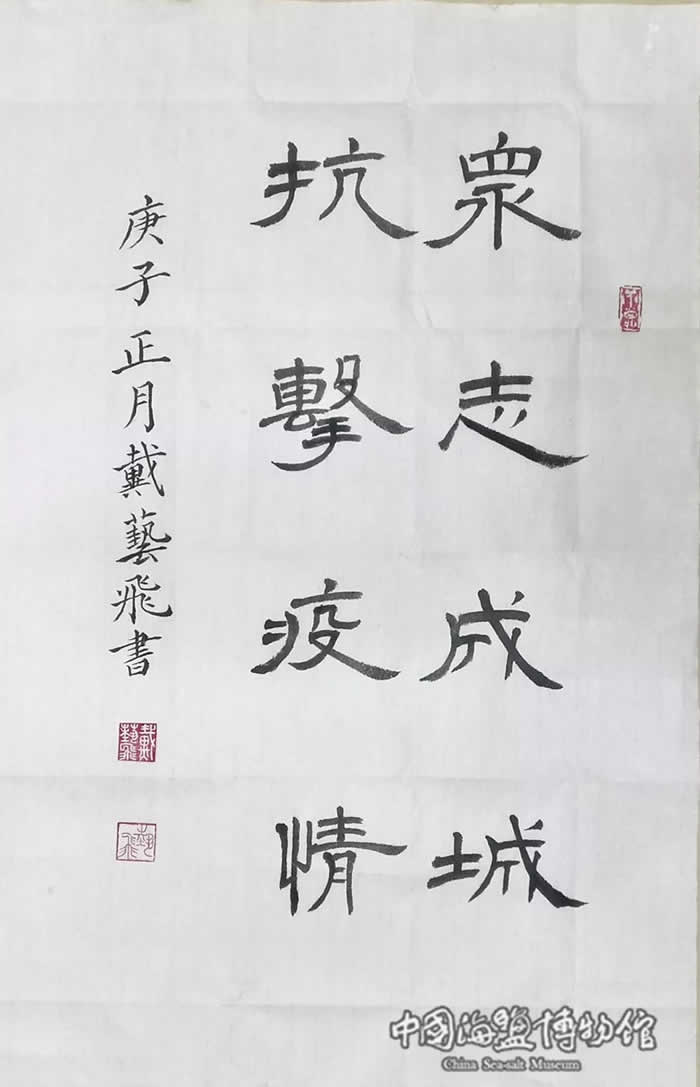 眾志成城
抗擊疫情
庚子正月戴藝飛書
戴藝飛
中国海盐博物馆
China Sea-salt Museum